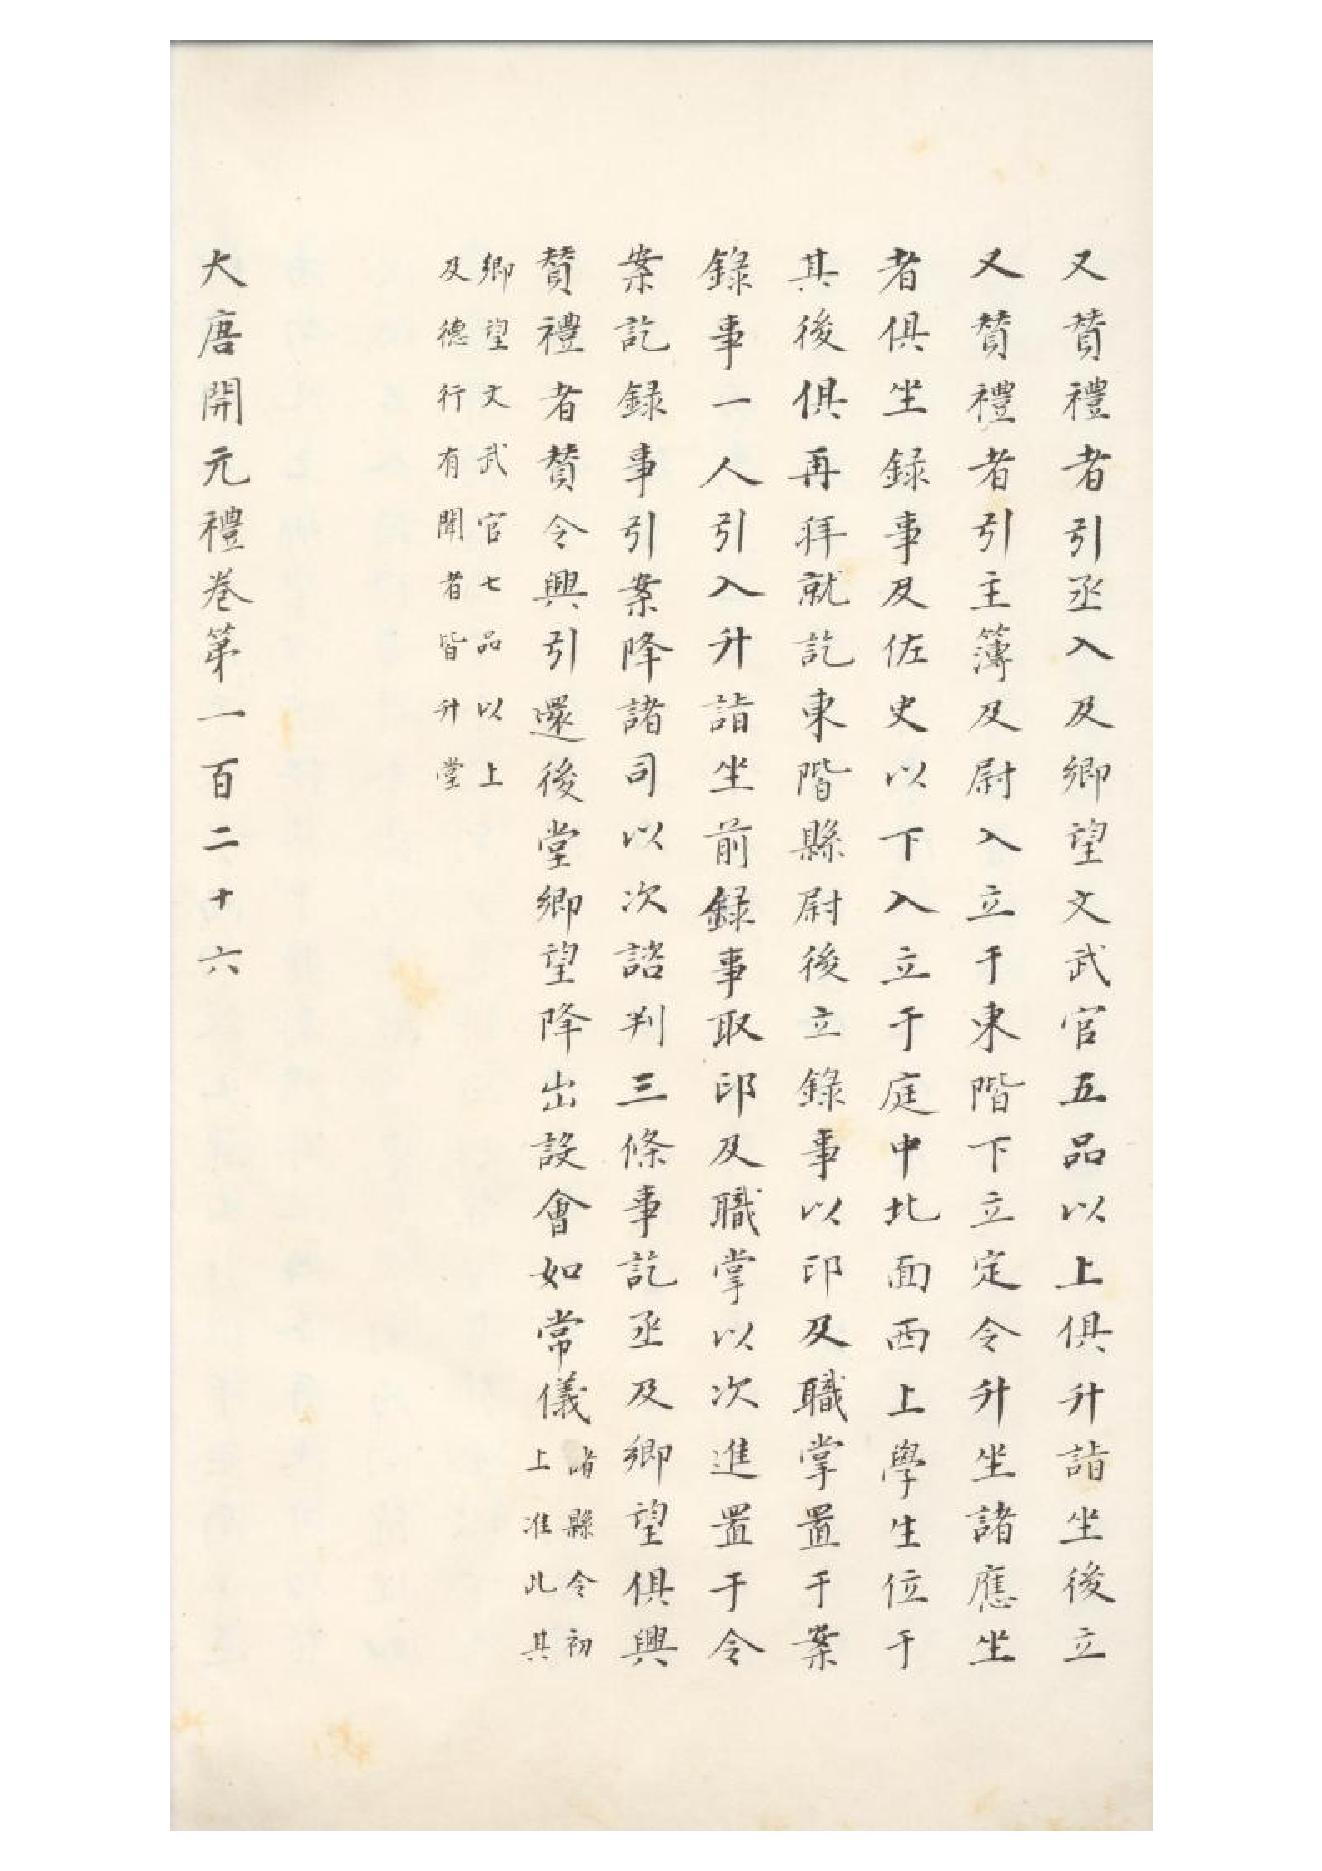 又賛禮者引丞入及鄉望文武官五品以上俱升詣坐後立
又賛禮者引主簿及尉入立于東階下立定令升坐諸應坐
者俱坐録事及佐史以下入立于庭中北面西上學生位于
其後俱再拜就訖東階縣尉後立錄事以印及職掌置于案
錄事一人引入升詣坐前錄事取印及職掌以次進置于令
案訖録事引案降諸司以次諮判三條事訖丞及鄉望俱興
賛禮者賛令興引還後堂鄉望降出設會如常儀
諸縣令初
上准此其
鄉望文武官七品以上
及德行有聞者皆升堂
大唐開元禮卷第一百二十六